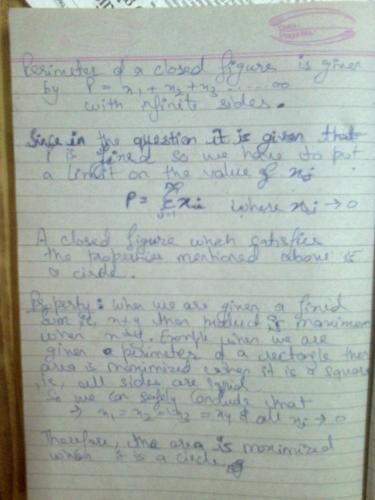 Perimeter of a closed figure is given
by P = x1 + x2 + x3 ...... ∞
with infinite sides.
Since in the question it is given that
P is fixed so we have to put
a limit on the value of xi
P = ∞Σi=1 xi where xi → 0
A closed figure which satisfies
the properties mentioned above is
a circle.
Property: when we are given a fixed
sum ie, x+y then product is maximum
when x=y. Example when we are
given a perimeter of a rectangle then
area is maximized when it is a square
ie, all sides are equal
So we can safely conclude that
→ x1 = x2 = x3 = x4 & all xi → 0
Therefore, the area is maximized
when it is a circle